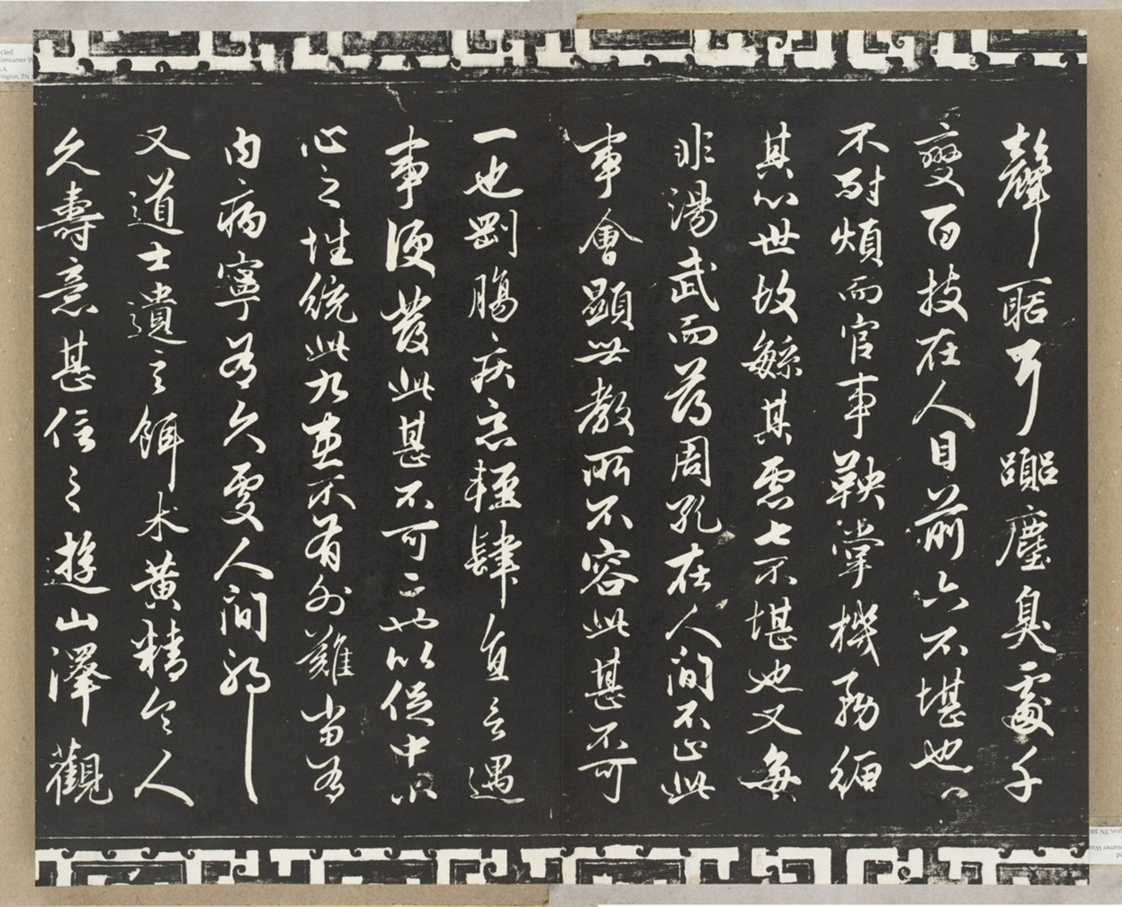 聲聒耳囂塵臭處千
變百技在人目前六不堪也
不耐煩而官事鞅掌機務纏
其心世故繁其慮七不堪也又每
非湯武而薄周孔在人間不止此
事會顯世教所不容此甚不可
一也剛腸疾惡輕肆直言遇
事便發此甚不可二也以促中小
心之性統此九患不有外難當有
內病寧可久處人間邪
又道士遺言餌朮黃精令人
久壽意甚信之遊山澤觀